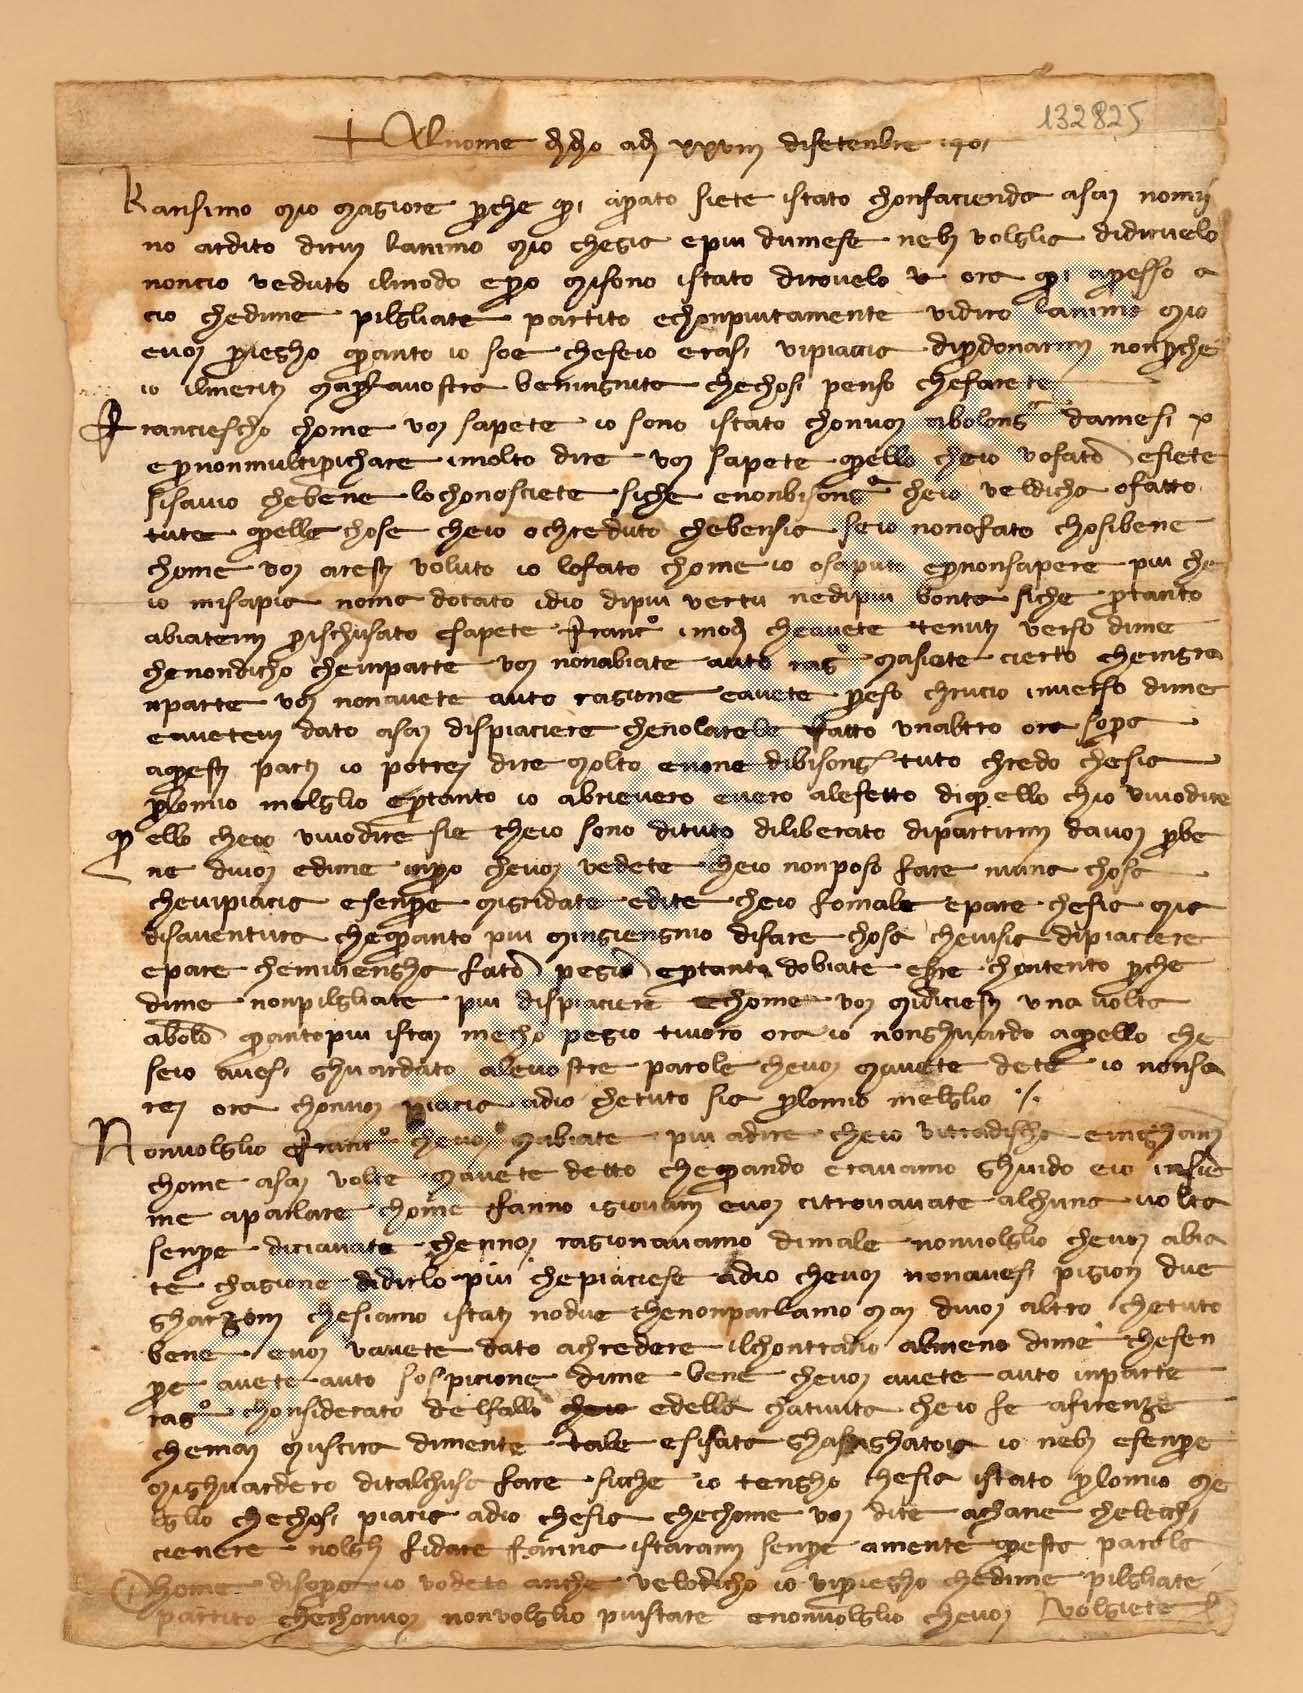 132825
+ Al nome di dio adi xxviii disetenbre 1401
Karisimo mio magiore perche per apato siete istato chonfaciende asai nomi
no ardito dirvi lanimo mio chegia epiu dumese neb volglia didirvelo
noncio veduto ilmodo epero misono istato dirovelo ora apresso a
cio chedime pilgliate partito echonpiutamente vidiro lanimo mio
evoi priegho quanto io soe cheseio erasi vipiaccia diperdonarmi nonperche
io ilmeriti mapella vostra beningnita chechosi penso chefarete
Franciescho chome voi sapete io sono istato chonvoi abolongna damesi
epernonmultiprichare imolto dire voi sapete quello cheio vofato esiete
sisavio chebene lochonosciete siche enonbisongna cheio veldicha ofatto
tute quelle chose cheio ochreduto chebensia seio nonofato chosibene
chome voi aresti voluto io lofato chome io osaputo epernonsapere piu che
io misapia noma dotato idio dipiu vertu nedipiu bonta siche pertanto
abiatemi perischusato esapete Francº imodi cheavete tenuti verso dime
chenondicho cheinparte voi nonabiate auto ragº masiate cierto cheingra
nparte voi nonavete auto ragione eavete preso chrucio inverso dime
eavetemi dato asai dispiaciere chenolarebe fatto unaltro ora sopra
aquesti parti io potrei dire molto enone dibisongno tuto chredo chesia
perlomio melglio epertanto io abrievero evero alefetto diquello chio vuodire
quello cheio vuodire sie cheio sono dituto diliberato dipartirmi davoi perbe
ne divoi edime inpero chevoi vedete cheio nonposo fare niuna chosa
chevipiacia esenpre migridate edite cheio fomale epare chesia mia
disaventura chequanto piu mingiengnio difare chosa chevisia dipiaciere
epare chemivengha fato pegio epertanto dobiate esere chontento perche
dime nonpilgliate piu dispiaciere echome voi midiciesti una volta
abolo quantopiu istai mecho pegio tuvoro ora io nonghuardo aquello che
seio avesi ghuardato alevostre parole chevoi mavete dete io nonsa
rei ora chonvoi piacia adio chetuto sia perlomio melglio
Nonvolglio Francº chevoi mabiate piu adire cheio vitradischa einghani
chome asai volte mavete detto chequando eravamo ghuido eio insie
me aparlare chome fanno igiovani evoi citrovavate alchuna volta
senpre diciavate chennoi ragionavamo dimale nonvolglio chevoi abia
te chagione didirlo piu chepiaciese adio chevoi nonavesi pigiori due
gharzoni chesiamo istati nodue chenonparlamo mai divoi altro chetuto
bene evoi vavete dato achredere ilchontradio almeno dime chesen
pre avete auto sospicione dime bene chevoi avete auto inparte
ragº chonsiderato delfallo edella chativita cheio fe afirenze
chemai muscira dimente tale esisata ghastighatoia io nebi esenpre
mighuardero ditalchosa fare siche io tengho chesia istato perlomio me
lglio chechosi piacia adio chesia chechome voi dite achane chelecchi
cienere nolgli fidare farina istarami senpre amente questa parola
Chome disopra io vodeto anche velodicho io vipriegho chedime pilgliate
partito chechonvoi nonvolglio piustare enonvolglio chevoi volgiate